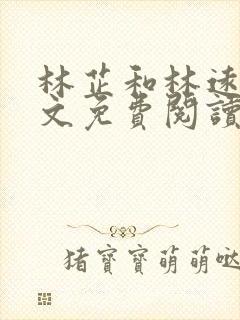 林芷和林远
文免費閱讀
猪寶寶萌萌哒